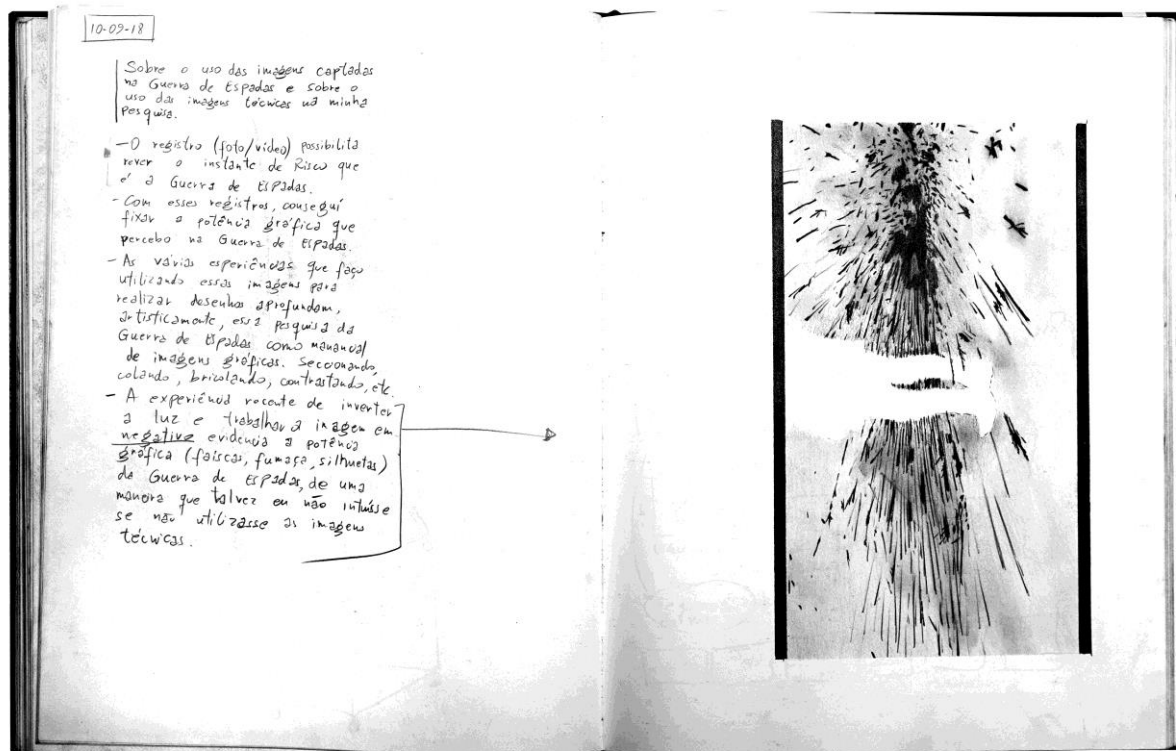 10-09-18
Sobre o uso das imagens captadas
na Guerra de Espadas e sobre o
uso das imagens técnicas na minha
pesquisa.
— O registro (foto/vídeo) possibilita
rever o instante de Risco que
é a Guerra de Espadas.
- Com esses registros, consegui
fixar a potência gráfica que
percebo na Guerra de Espadas.
- As várias esperiências que faço
utilizando essas imagens para
realizar desenhos aprofundam,
artisticamente, essa pesquisa da
Guerra de Espadas como manancial
de imagens gráficas. Seccionando,
colando, bricolando, contrastando, etc.
- A experiência recente de inverter
a luz e trabalhar a imagem em
negativo evidencia a potência
gráfica (faíscas, fumaça, silhuetas)
da Guerra de Espadas, de uma
maneira que talvez eu não intuísse
se não utilizasse as imagens
técnicas.